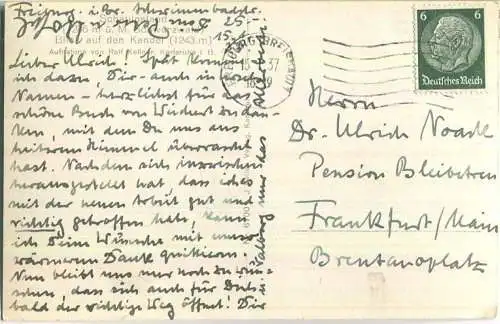 Freiburg i. Br. Schwimmbadstr.
Schauinsland
Blick auf den Kandel (1243 m)
Lieber Ulrich! Spät komme
ich dazu, Dir – auch in
Namen – herzlichst für das
schöne Buch von Wiechert zu dan-
ken, mit dem Du uns aus
heiterem Himmel überrascht
hast. Nachdem sich inzwischen
herausgestellt hat, dass ich es
mit der neuen Arbeit gut und
richtig getroffen habe, kann
ich Deine Wünsche mit umso
wärmerem Dank quittieren.
Nun bleibt uns nur noch zu wün-
schen, dass sich auch für Dich
bald der richtige Weg öffnet! Dir
FREIBURG (BREISGAU)
37
6 6
Deutsches Reich
Herrn
Dr. Ulrich Noack
Pension Bleibetreu
Frankfurt/Main
Brentanoplatz